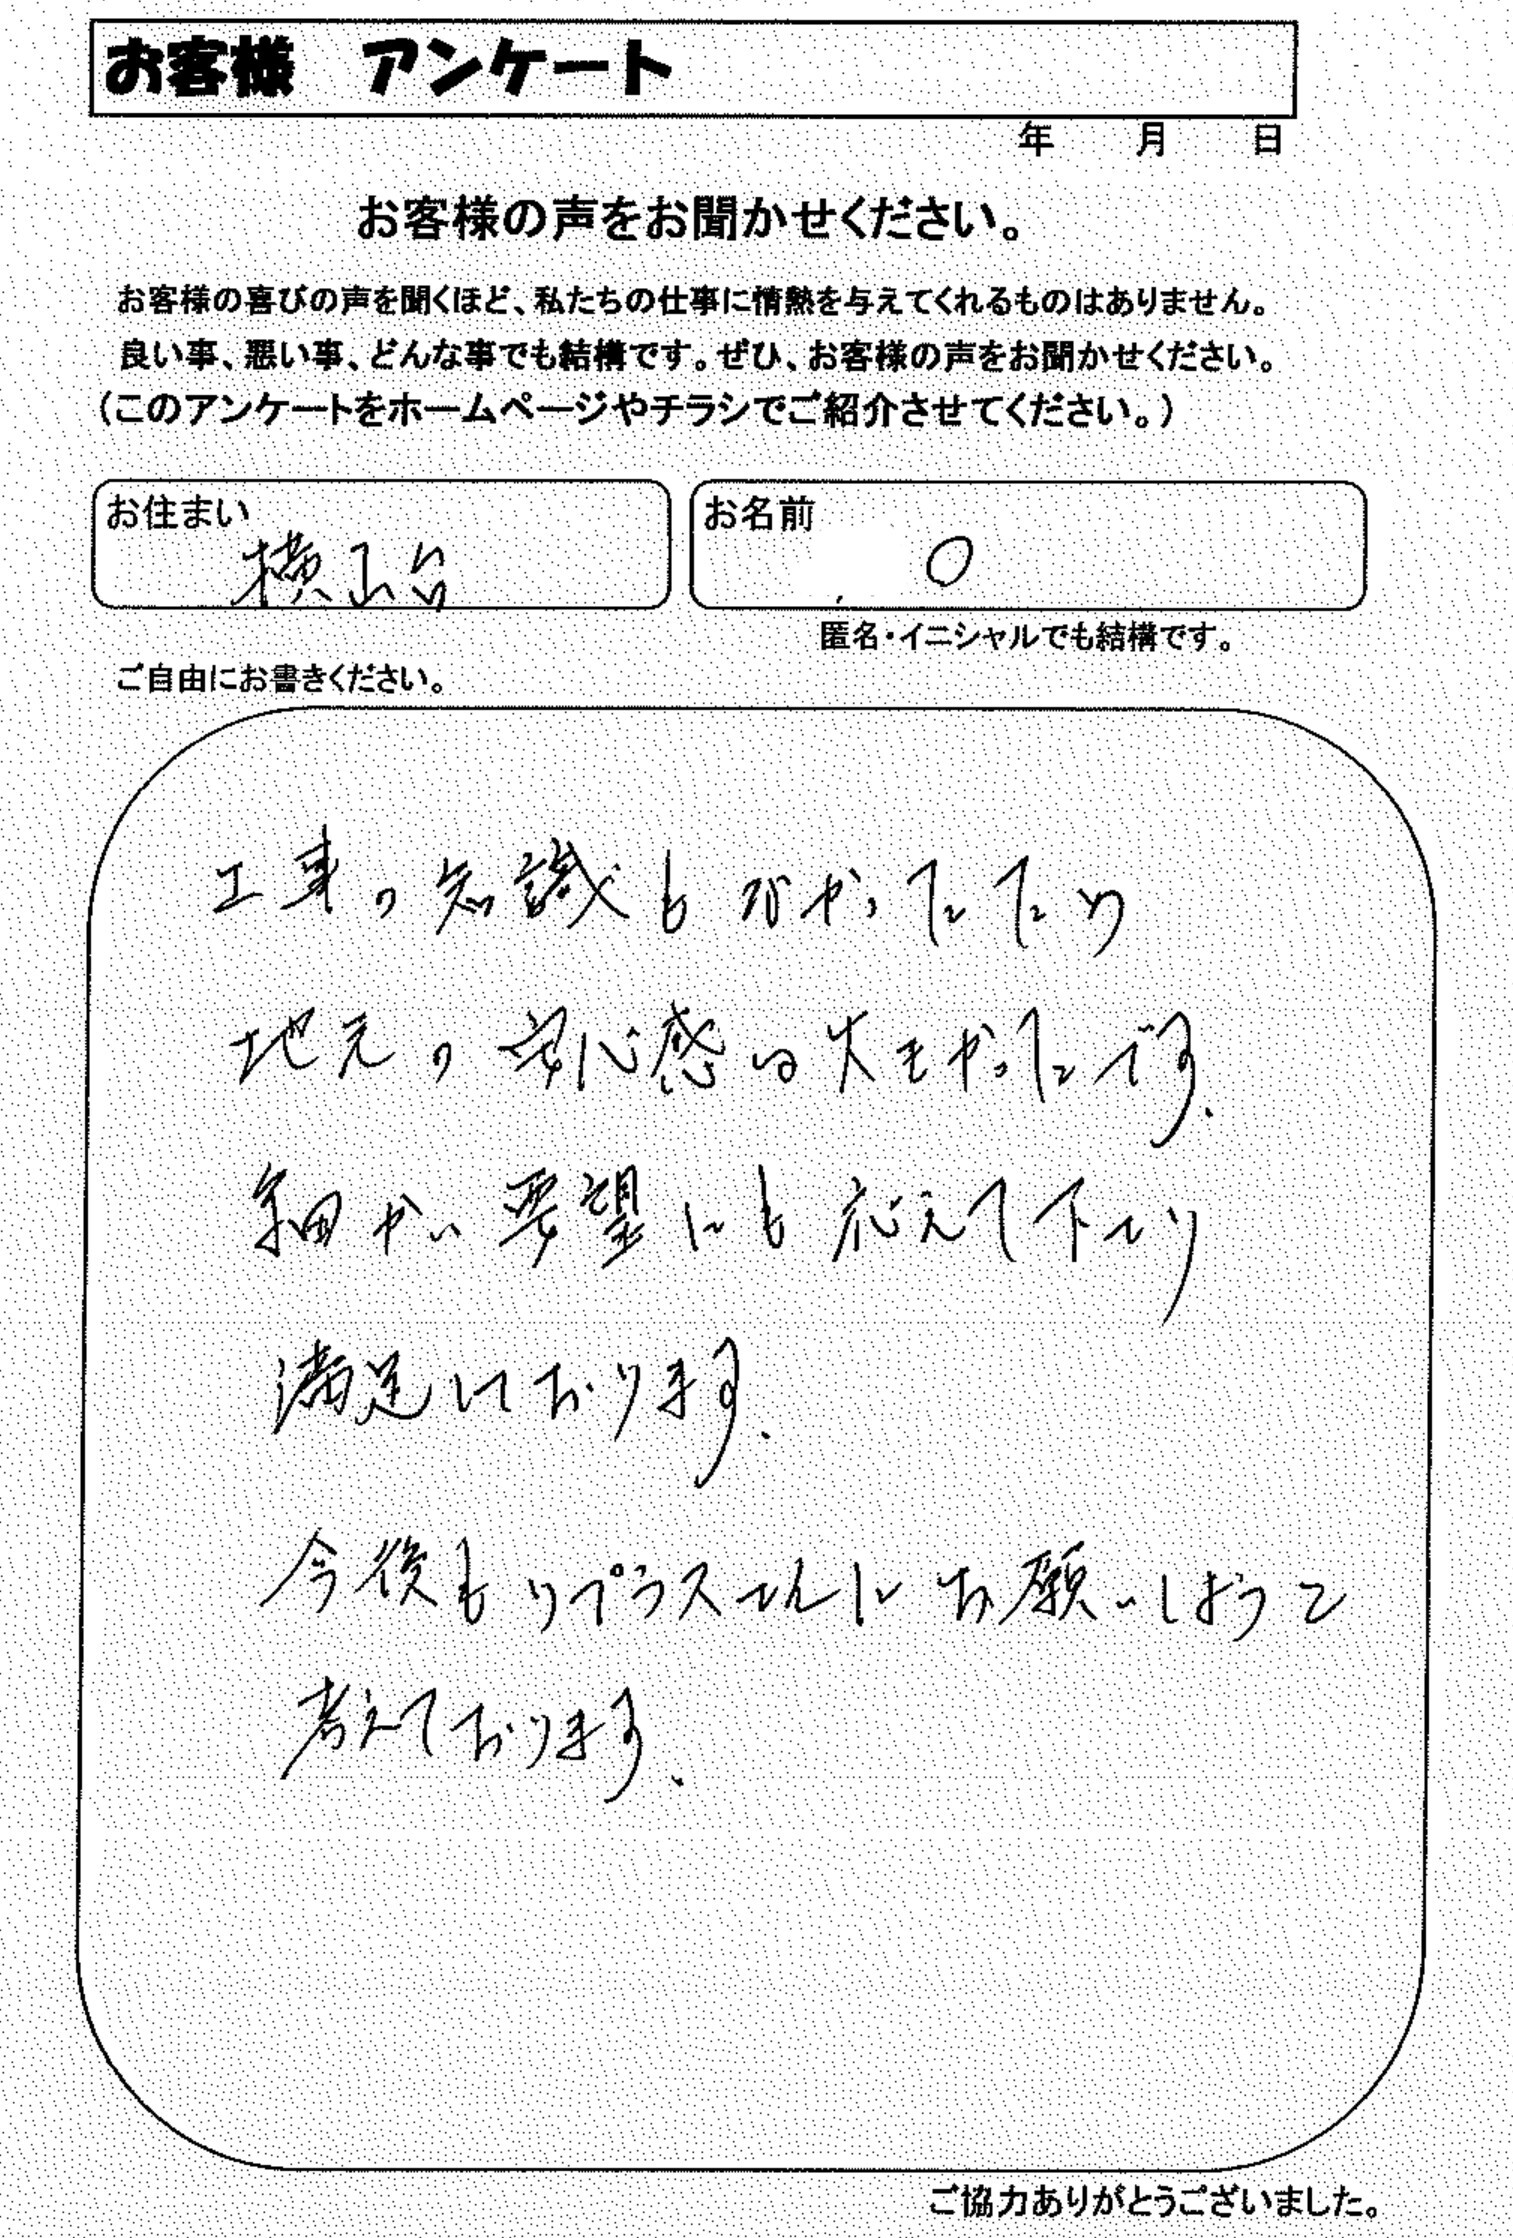 お客様　アンケート
年　月　日
お客様の声をお聞かせください。
お客様の喜びの声を聞くほど、私たちの仕事に情熱を与えてくれるものはありません。
良い事、悪い事、どんな事でも結構です。ぜひ、お客様の声をお聞かせください。
（このアンケートをホームページやチラシでご紹介させてください。）
お住まい　お名前
横山台　O
匿名・イニシャルでも結構です。
ご自由にお書きください。
工事の知識もなかったため
地元の安心感は大きかったです。
細かい要望にも応えて下さり
満足しております。
今後もリプラスさんにお願いしようと
考えております。
ご協力ありがとうございました。